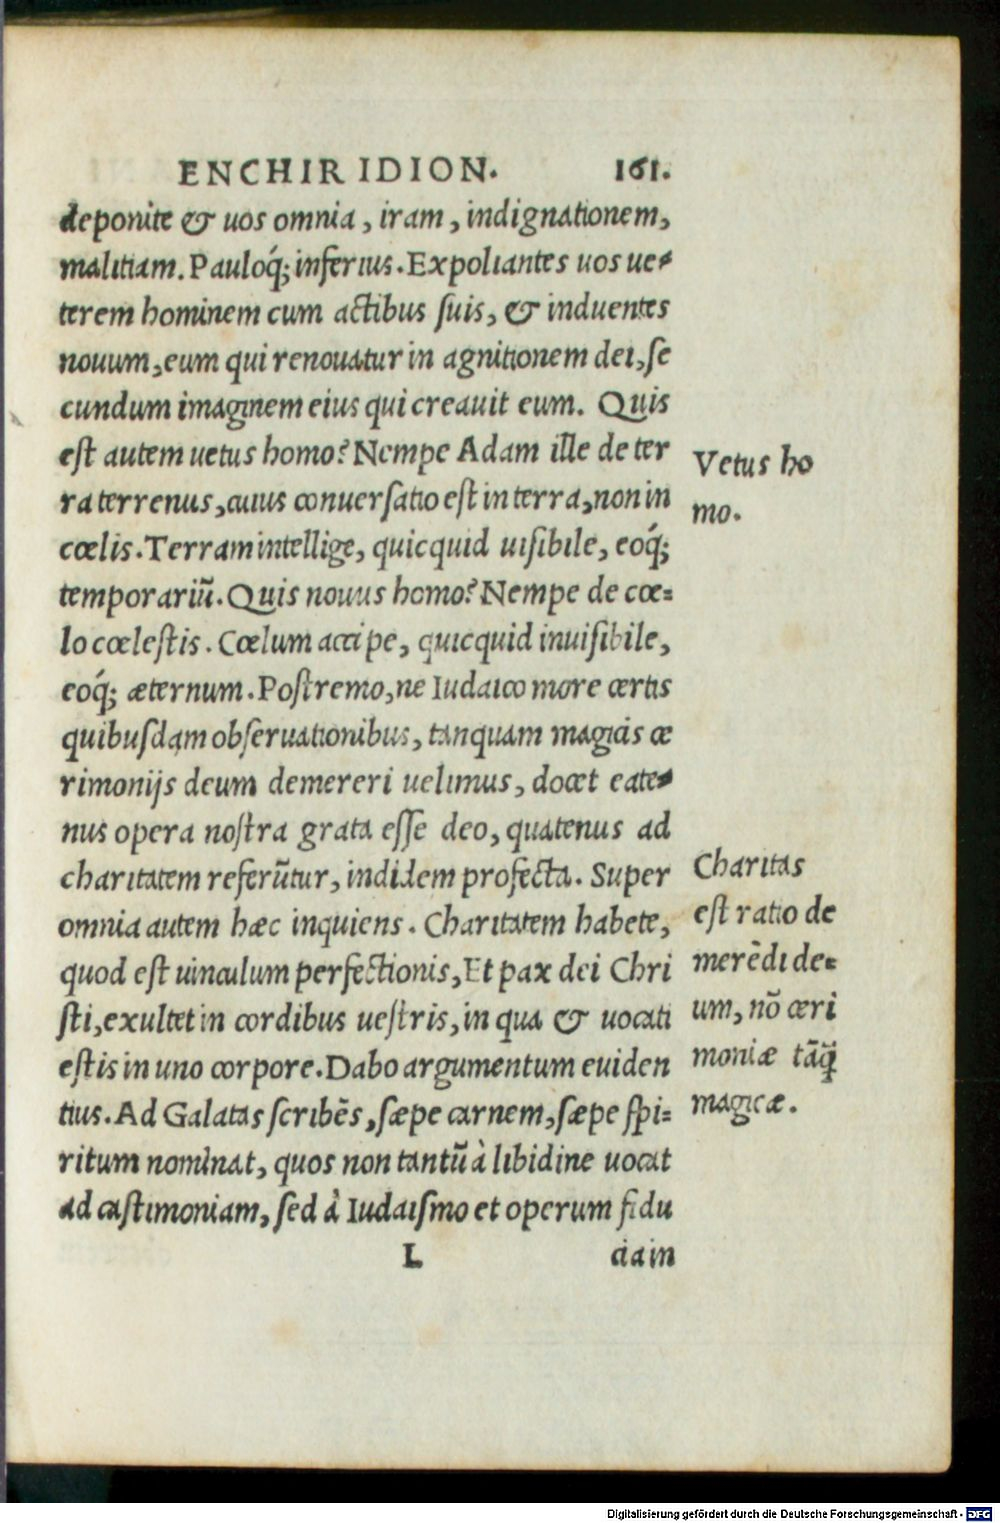 ENCHIRIDION. 161.
deponite & uos omnia, iram, indignationem,
malitiam. Pauloq́; inferius. Expoliantes uos ue-
terem hominem cum actibus suis, & induentes
nouum, eum qui renouatur in agnitionem dei, se
cundum imaginem eius qui creauit eum. Quis
est autem uetus homo? Nempe Adam ille de ter
ra terrenus, cuius conuersatio est in terra, non in
cœlis. Terram intellige, quicquid uisibile, eoq́;
temporariū. Quis nouus homo? Nempe de cœ-
lo cœlestis. Cœlum accipe, quicquid inuisibile,
eoq́; æternum. Postremo, ne Iudaico more certis
quibusdam obseruationibus, tanquam magicis cæ
rimonijs deum demereri uelimus, docet eate-
nus opera nostra grata esse deo, quatenus ad
charitatem referūtur, indidem profecta. Super
omnia autem hæc inquiens. Charitatem habete,
quod est uinculum perfectionis, Et pax dei Chri
sti, exultet in cordibus uestris, in qua & uocati
estis in uno corpore. Dabo argumentum euiden
tius. Ad Galatas scribēs, sæpe carnem, sæpe spi-
ritum nominat, quos non tantū à libidine uocat
ad castimoniam, sed à Iudaismo et operum fidu
L ciam
Vetus ho
mo.
Charitas
est ratio de
merēdi de-
um, nō cæri
moniæ tāq̄
magicæ.
Digitalisierung gefördert durch die Deutsche Forschungsgemeinschaft - DFG